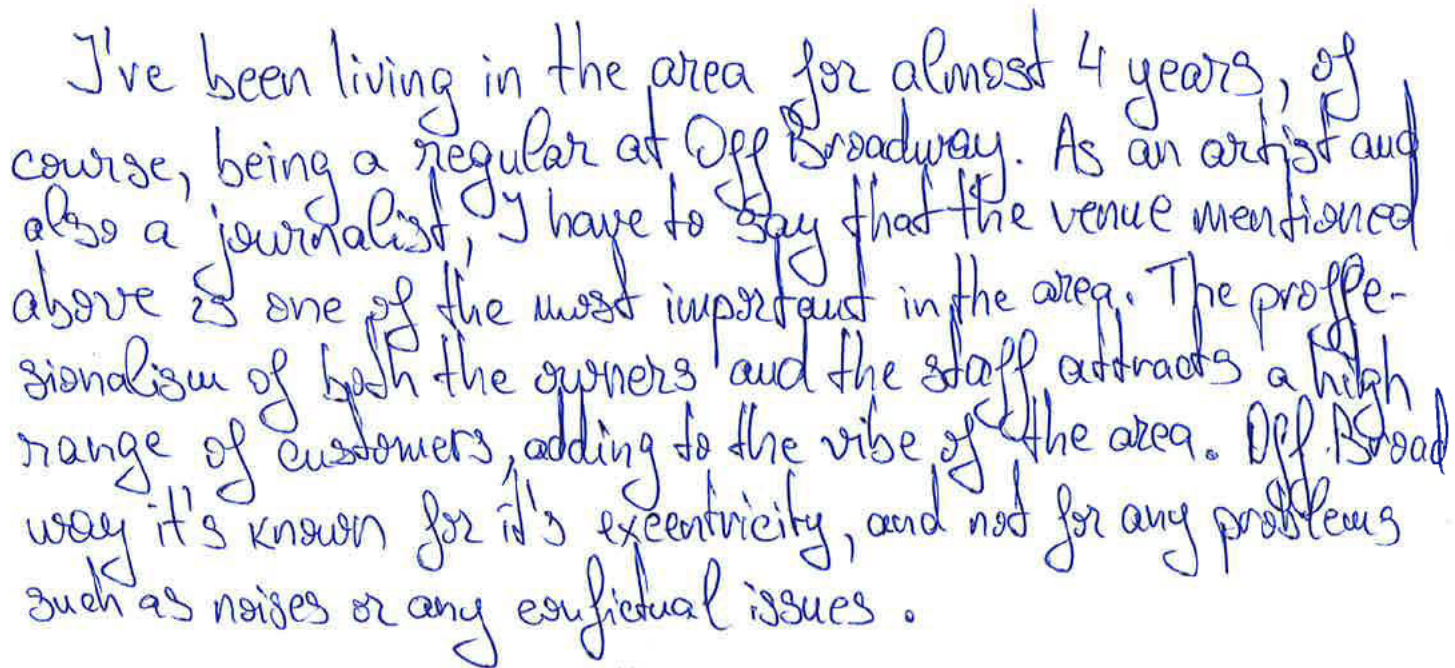 I've been living in the area for almost 4 years, of
course, being a regular at Off Broadway. As an artist and
also a journalist, I have to say that the venue mentioned
above is one of the most important in the area. The proffe-
sionalism of both the owners and the staff attracts a high
range of customers, adding to the vibe of the area. Off Broad
way it's known for it's excentricity, and not for any problems
such as noises or any confictual issues.